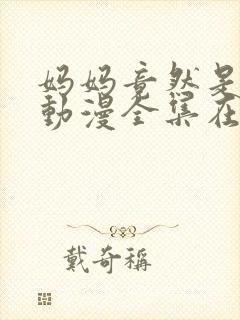 妈妈竟然是
動漫全集在
戴奇稱